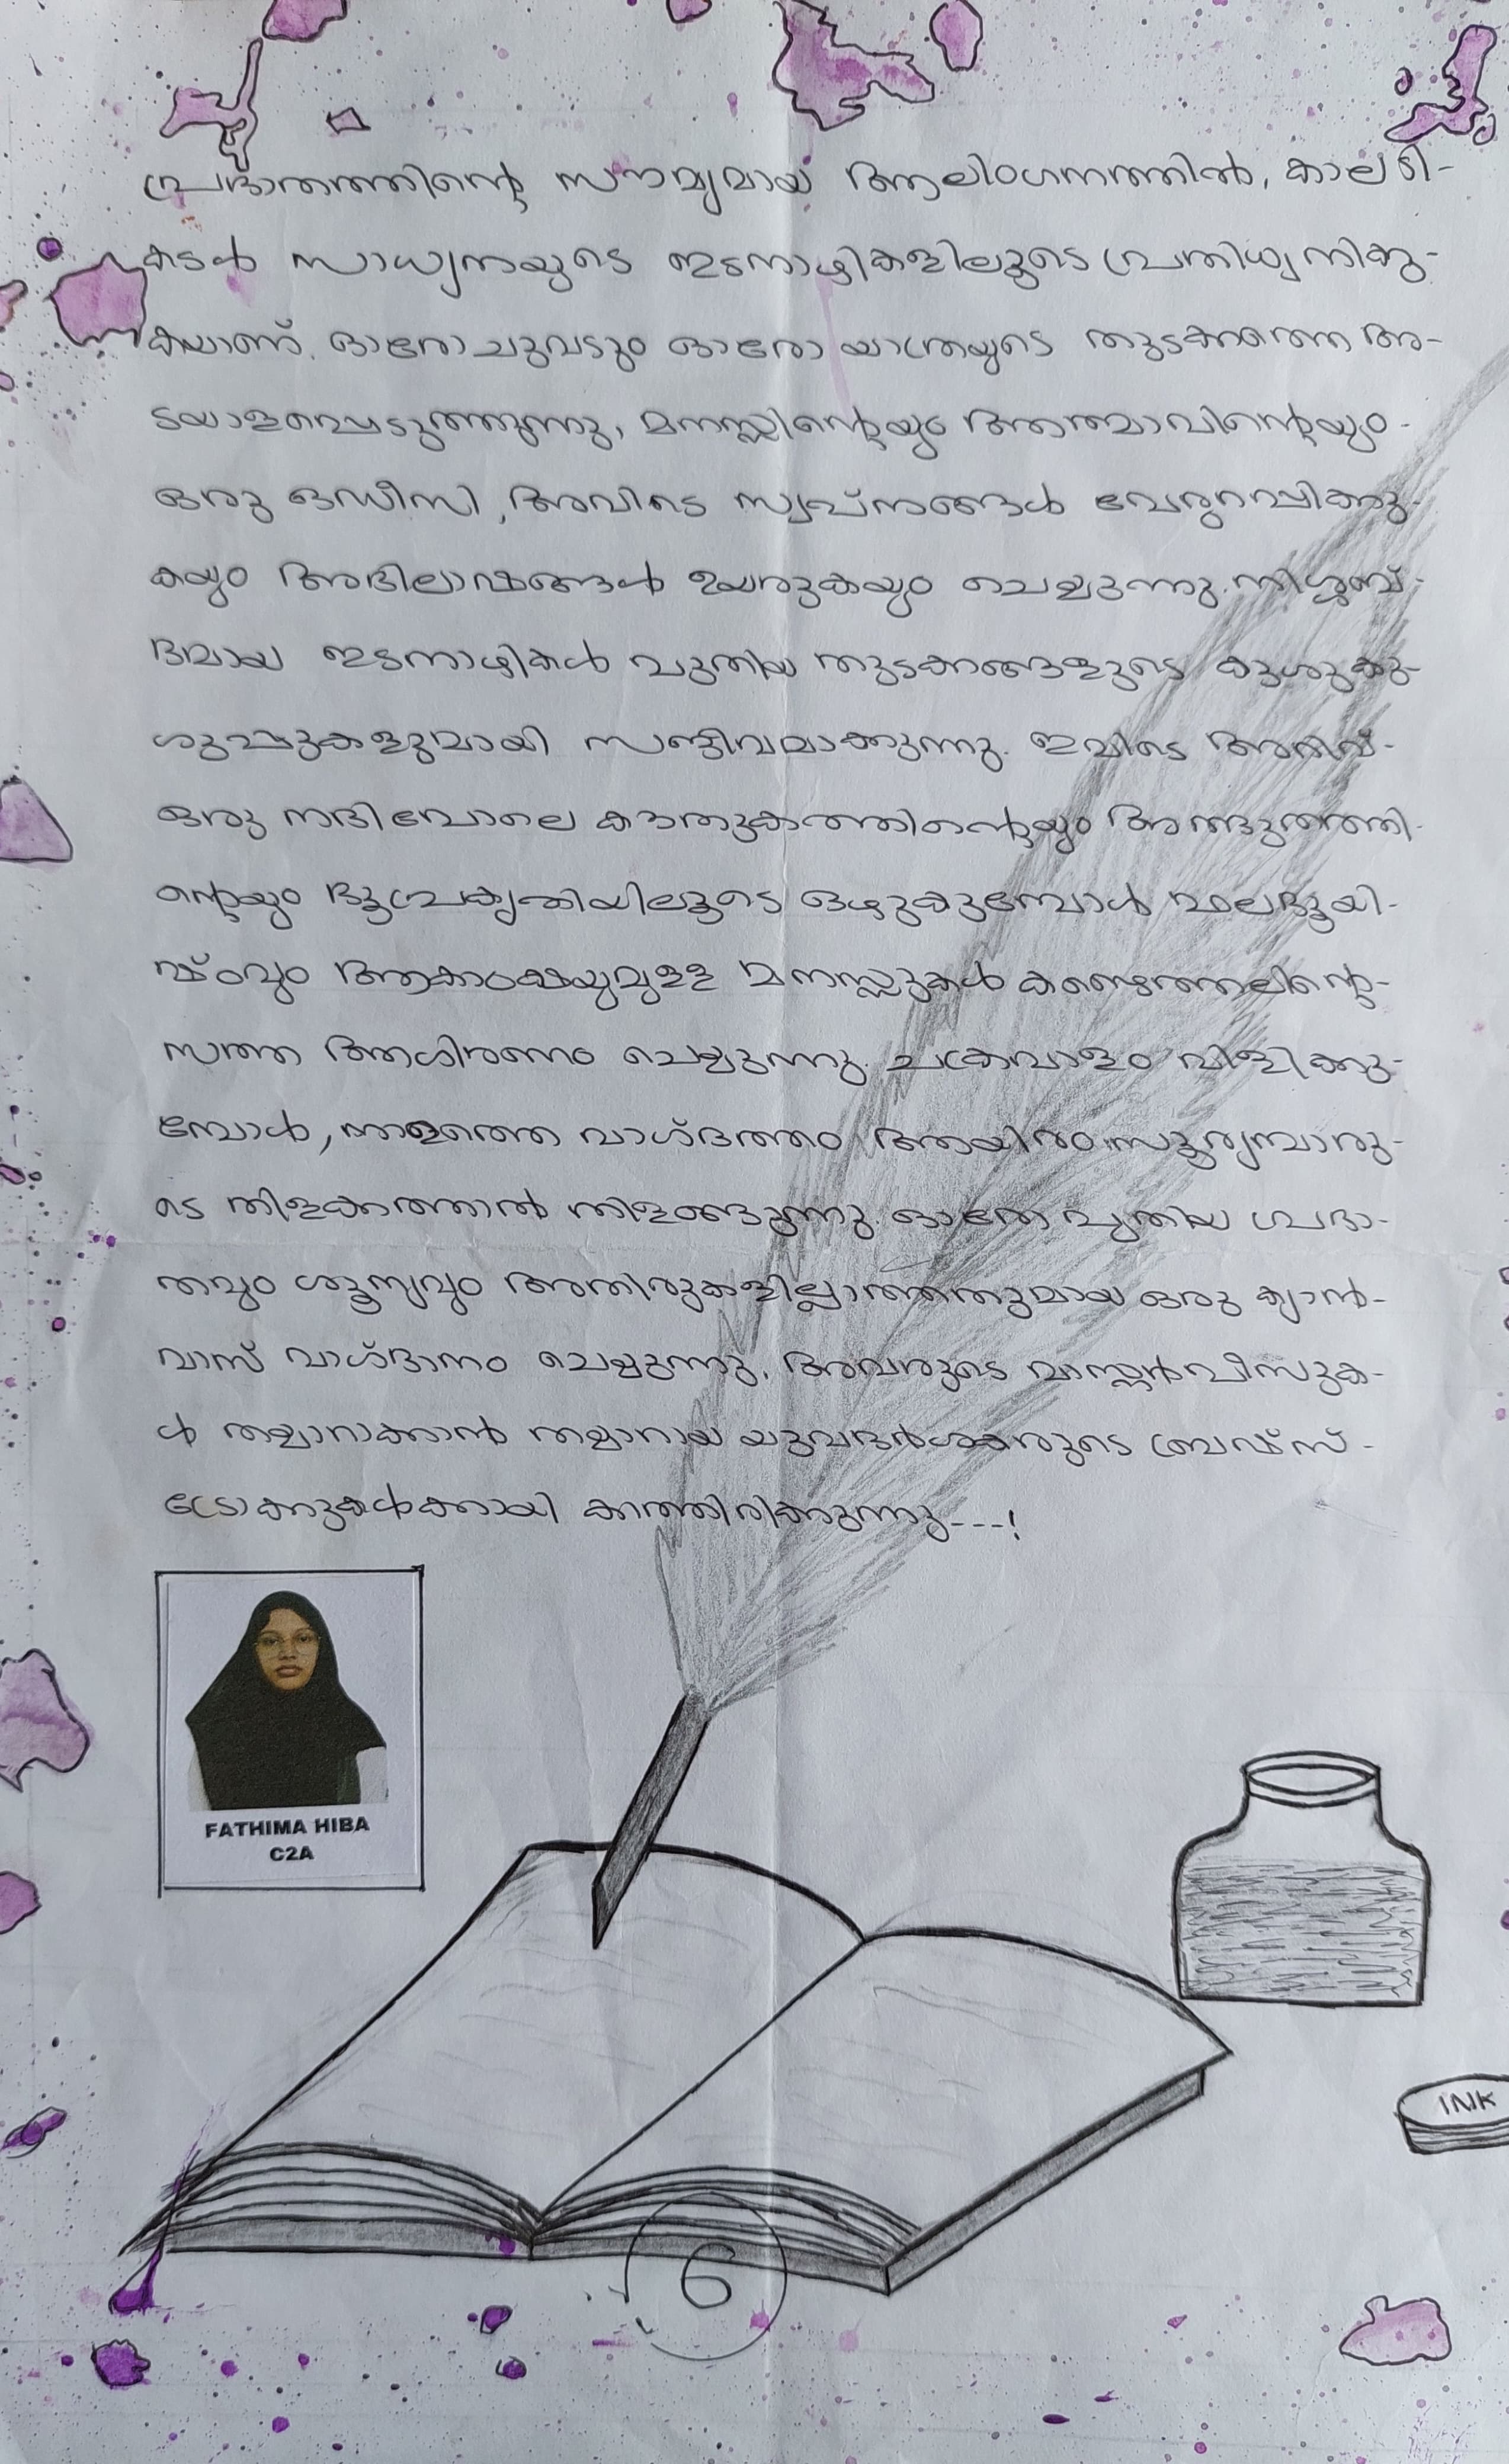 പ്രഭാതത്തിന്റെ സൗമ്യമായ ആലിംഗനത്തിൽ, കാലടി-
കടൽ സാധ്യതയുടെ ഇടനാഴികളിലൂടെ പ്രതിധ്വനിക്കു-
കയാണ്. ഓരോ ചുവടും ഓരോ യാത്രയുടെ തുടക്കത്തെ അ-
ടയാളപ്പെടുത്തുന്നു, മനസ്സിന്റെയും ആത്മാവിന്റെയും
ഒരു ഒഡീസി, അവിടെ സ്വപ്നങ്ങൾ വേരുറപ്പിക്കു-
കയും അഭിലാഷങ്ങൾ ഉയരുകയും ചെയ്യുന്നു. നിശ്ശബ്-
ദമായ ഇടനാഴികൾ പുതിയ തുടക്കങ്ങളുടെ കുശുകു-
ശുപ്പുകളുമായി സജീവമാക്കുന്നു. ഇവിടെ അറിവ്
ഒരു നദി പോലെ കൗതുകത്തിന്റെയും അത്ഭുതത്തി-
ന്റെയും ഭൂപ്രകൃതിയിലൂടെ ഒഴുകുമ്പോൾ ഫലഭൂയി-
ഷ്ഠവും ആകാംക്ഷയുമുള്ള മനസ്സുകൾ കണ്ടെത്തലിന്റെ
സത്ത ആഗിരണം ചെയ്യുന്നു. ചക്രവാളം വിളിക്കു-
മ്പോൾ, നാളത്തെ വാഗ്ദത്തം ആയിരം സൂര്യന്മാരു-
ടെ തിളക്കത്താൽ തിളങ്ങുന്നു. ഓരോ പുതിയ പ്രഭാ-
തവും ശൂന്യവും അതിരുകളില്ലാത്തതുമായ ഒരു ക്യാൻ-
വാസ് വാഗ്ദാനം ചെയ്യുന്നു, അവരുടെ മാസ്റ്റർപീസുക-
ൾ തയ്യാറാക്കാൻ തയ്യാറായ യുവദർശകരുടെ ബ്രഷ്സ്-
ട്രോക്കുകൾക്കായി കാത്തിരിക്കുന്നു---!
FATHIMA HIBA
C2A
INK
6